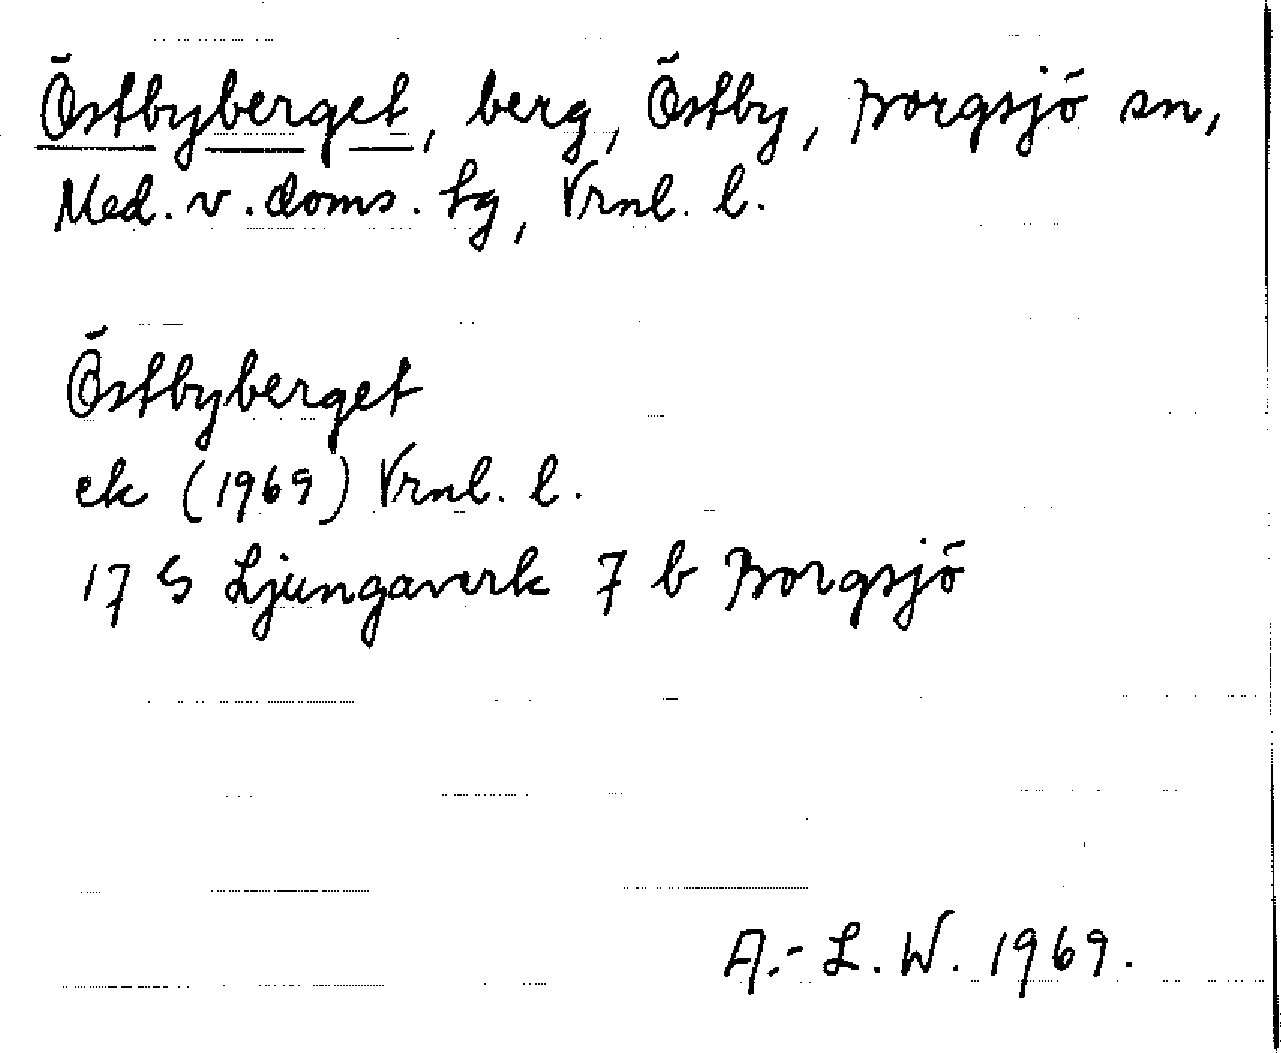 Östbyberget, berg, Östby, Borgsjö sn,
Med. v. doms. hg, Vrnl. l.
Östbyberget
ek (1969) Vrnl. l.
17 G Ljungaverk 7 b Borgsjö
A.-L. W. 1969.